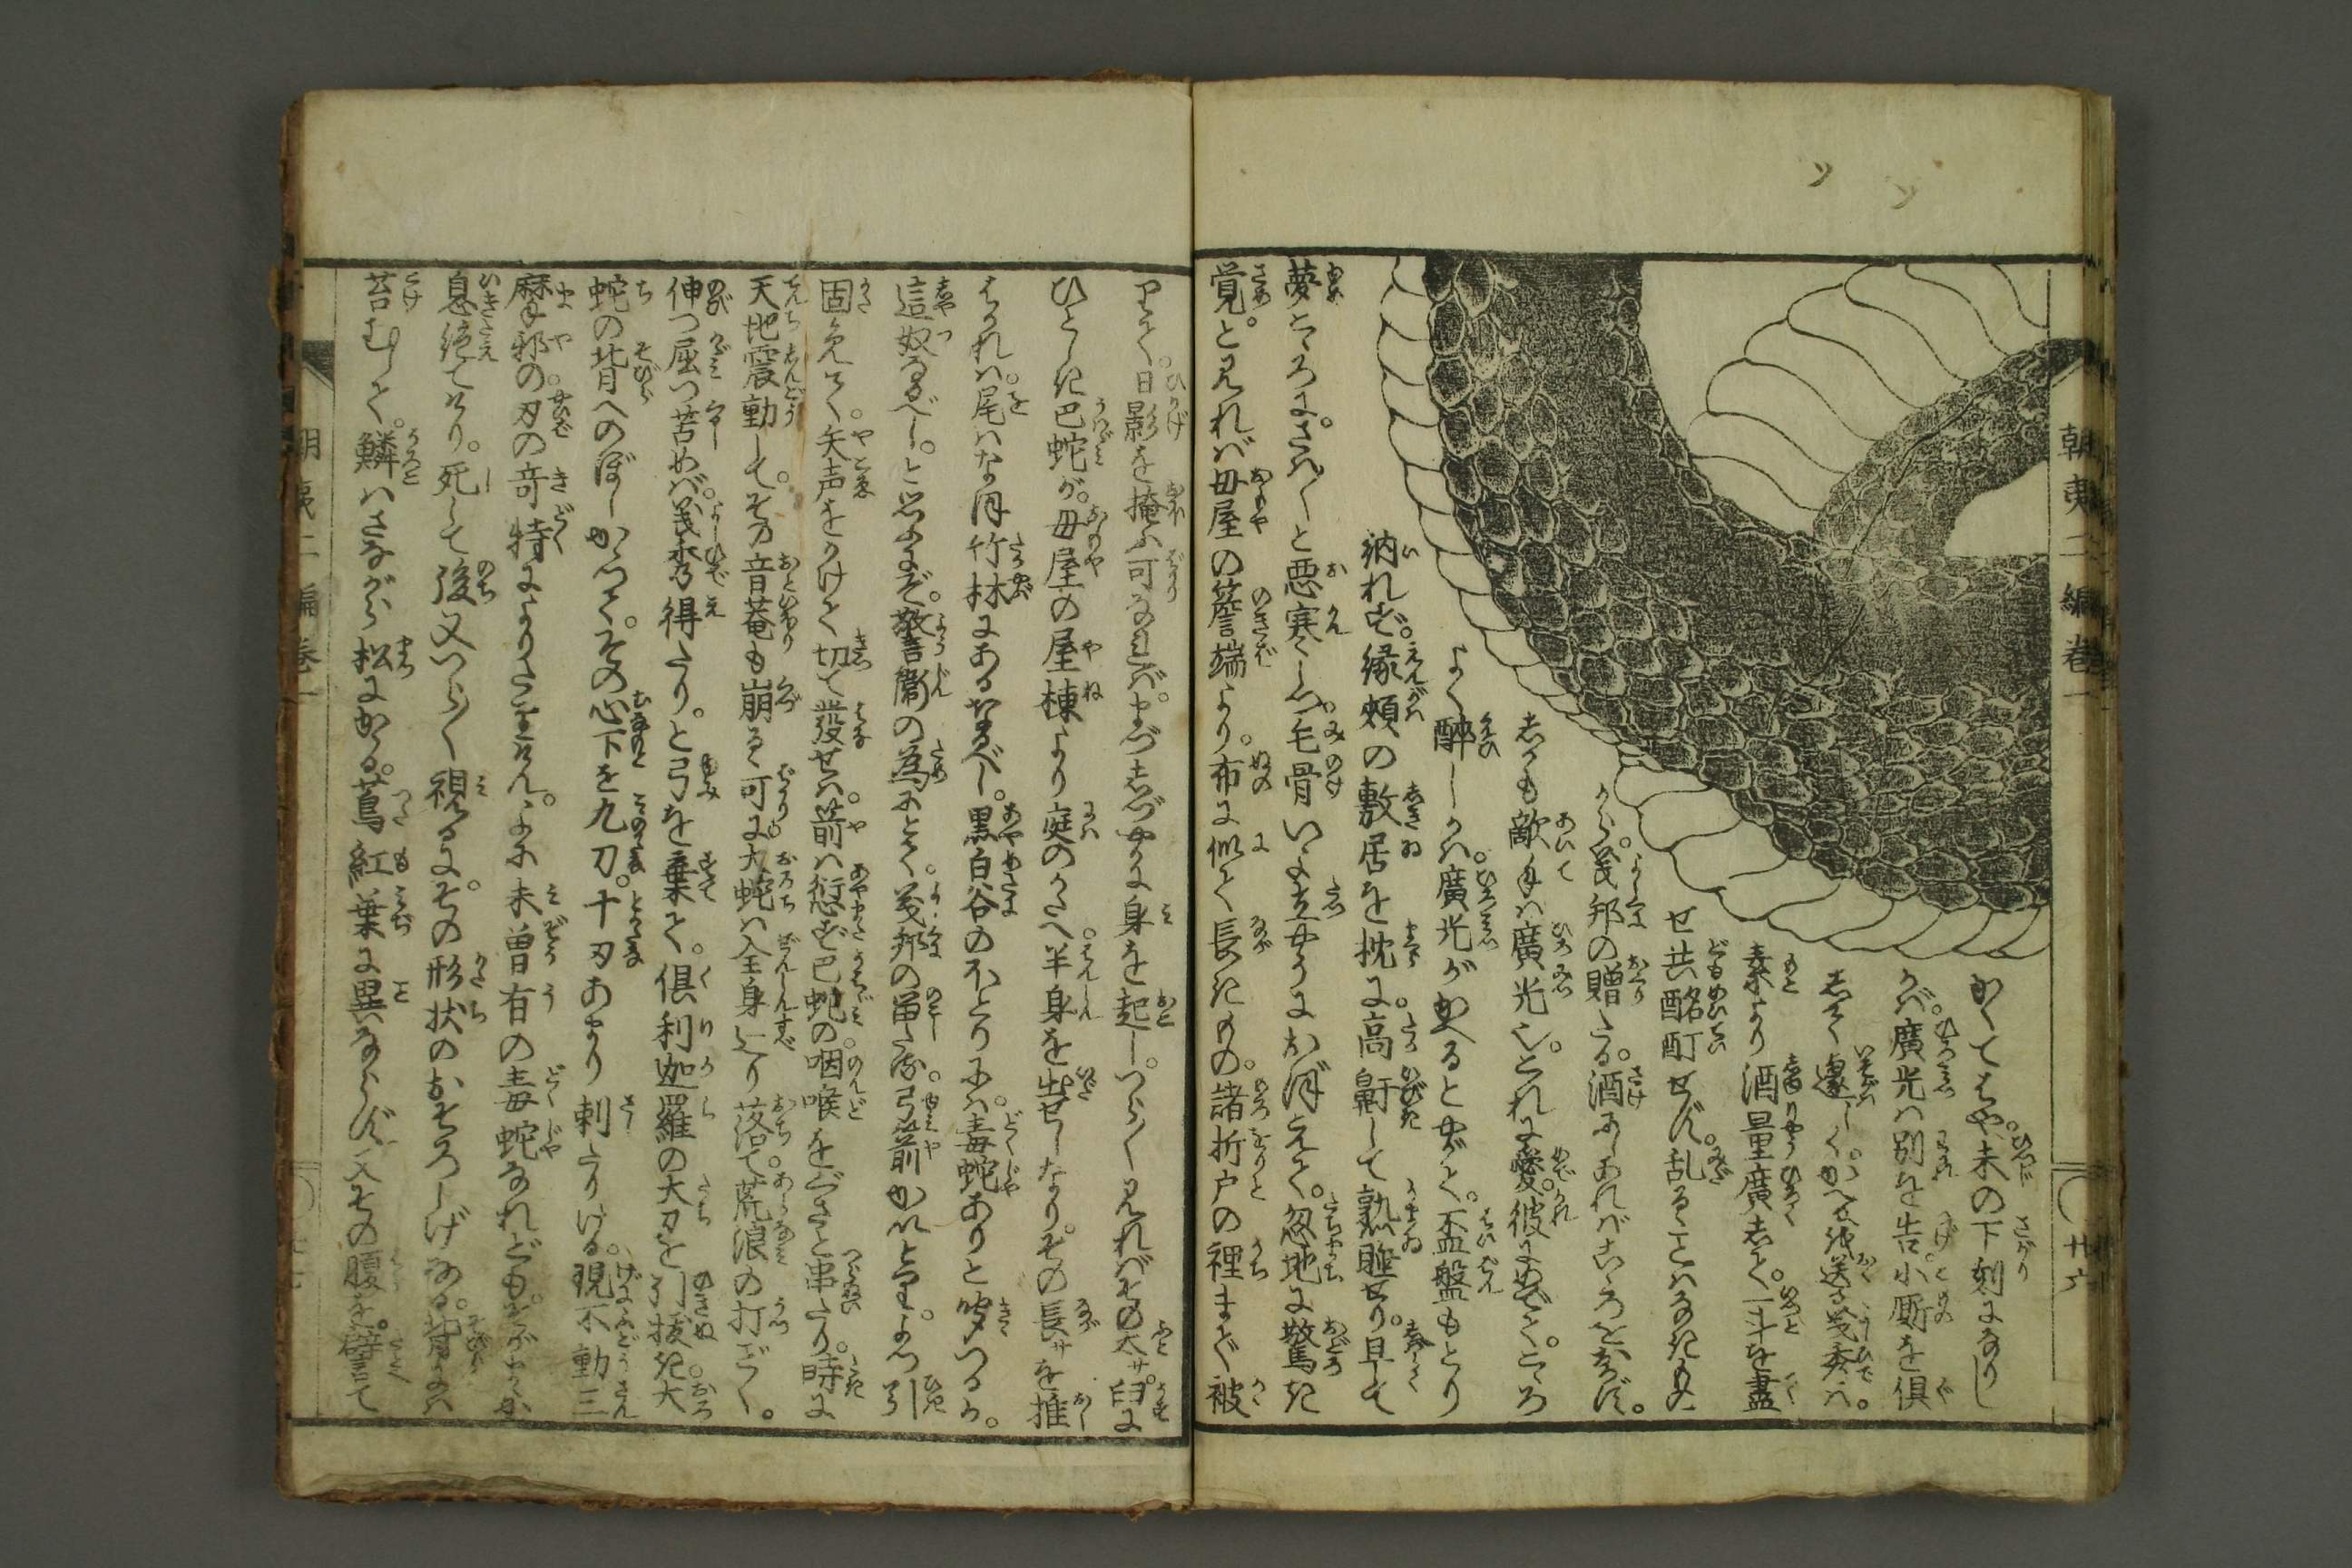 朝夷二編巻一
廿六
かくてはや未の下刻になりし
かば廣光は別を告小厮を倶
して遽しくかへを送る義秀は
素より酒量廣して一斗を盡
せ共酩酊せず乱ることはなきもの

から義邦の贈たる酒にしあればこゝろをおかず
しかも敵手は廣光也これに愛彼にめでてこゝろ
よく醉しかば廣光がかへるとやがて盃盤もとり
納れず縁頬の敷居を枕に高鼾して熟睡せり且して
夢こゝろにさへ〳〵と悪寒くし毛骨いよ立やうにおぼえて忽地に驚き
覚と見れば母屋の簷端より布に似て長きもの諸折戸の裡まで被
りて日影を掩ふ可なればまづしづやかに身を起しつら〳〵見ればその太サ臼に
ひとしき巴蛇が母屋の屋棟より庭のかたへ半身を出せしなりその長サを推
はかれは尾はなほ竹林にあるなるべし黒白谷のほとりには毒蛇ありと聞つるが
這奴なるべしと思ふにぞ警衛の為にとて義邦の留たる弓箭かいとりよつ引
固めて矢声をかけて切て發せは箭は愆ず巴蛇の咽喉をぐさと串たり時に
天地震動してその音菴も崩るゝ可に大蛇は全身辷り落て荒浪の打ごとく
伸つ屈つ苦めば義秀得たりと弓を棄て倶利迦羅の大刀を引抜き大
蛇の背へのぼしかゝつてその心下を九刀十刃あまり刺たりける現不動三
摩耶の刃の奇特によりたまけんよに未曽有の毒蛇なれどもすがまゝか
息絶てけり死して後又つら〳〵視るにその形状のおそろしげなる背には
苔むして鱗はさながら松にかゝる蔦紅葉に異ならず又その腹を譬て
朝夷二編巻一